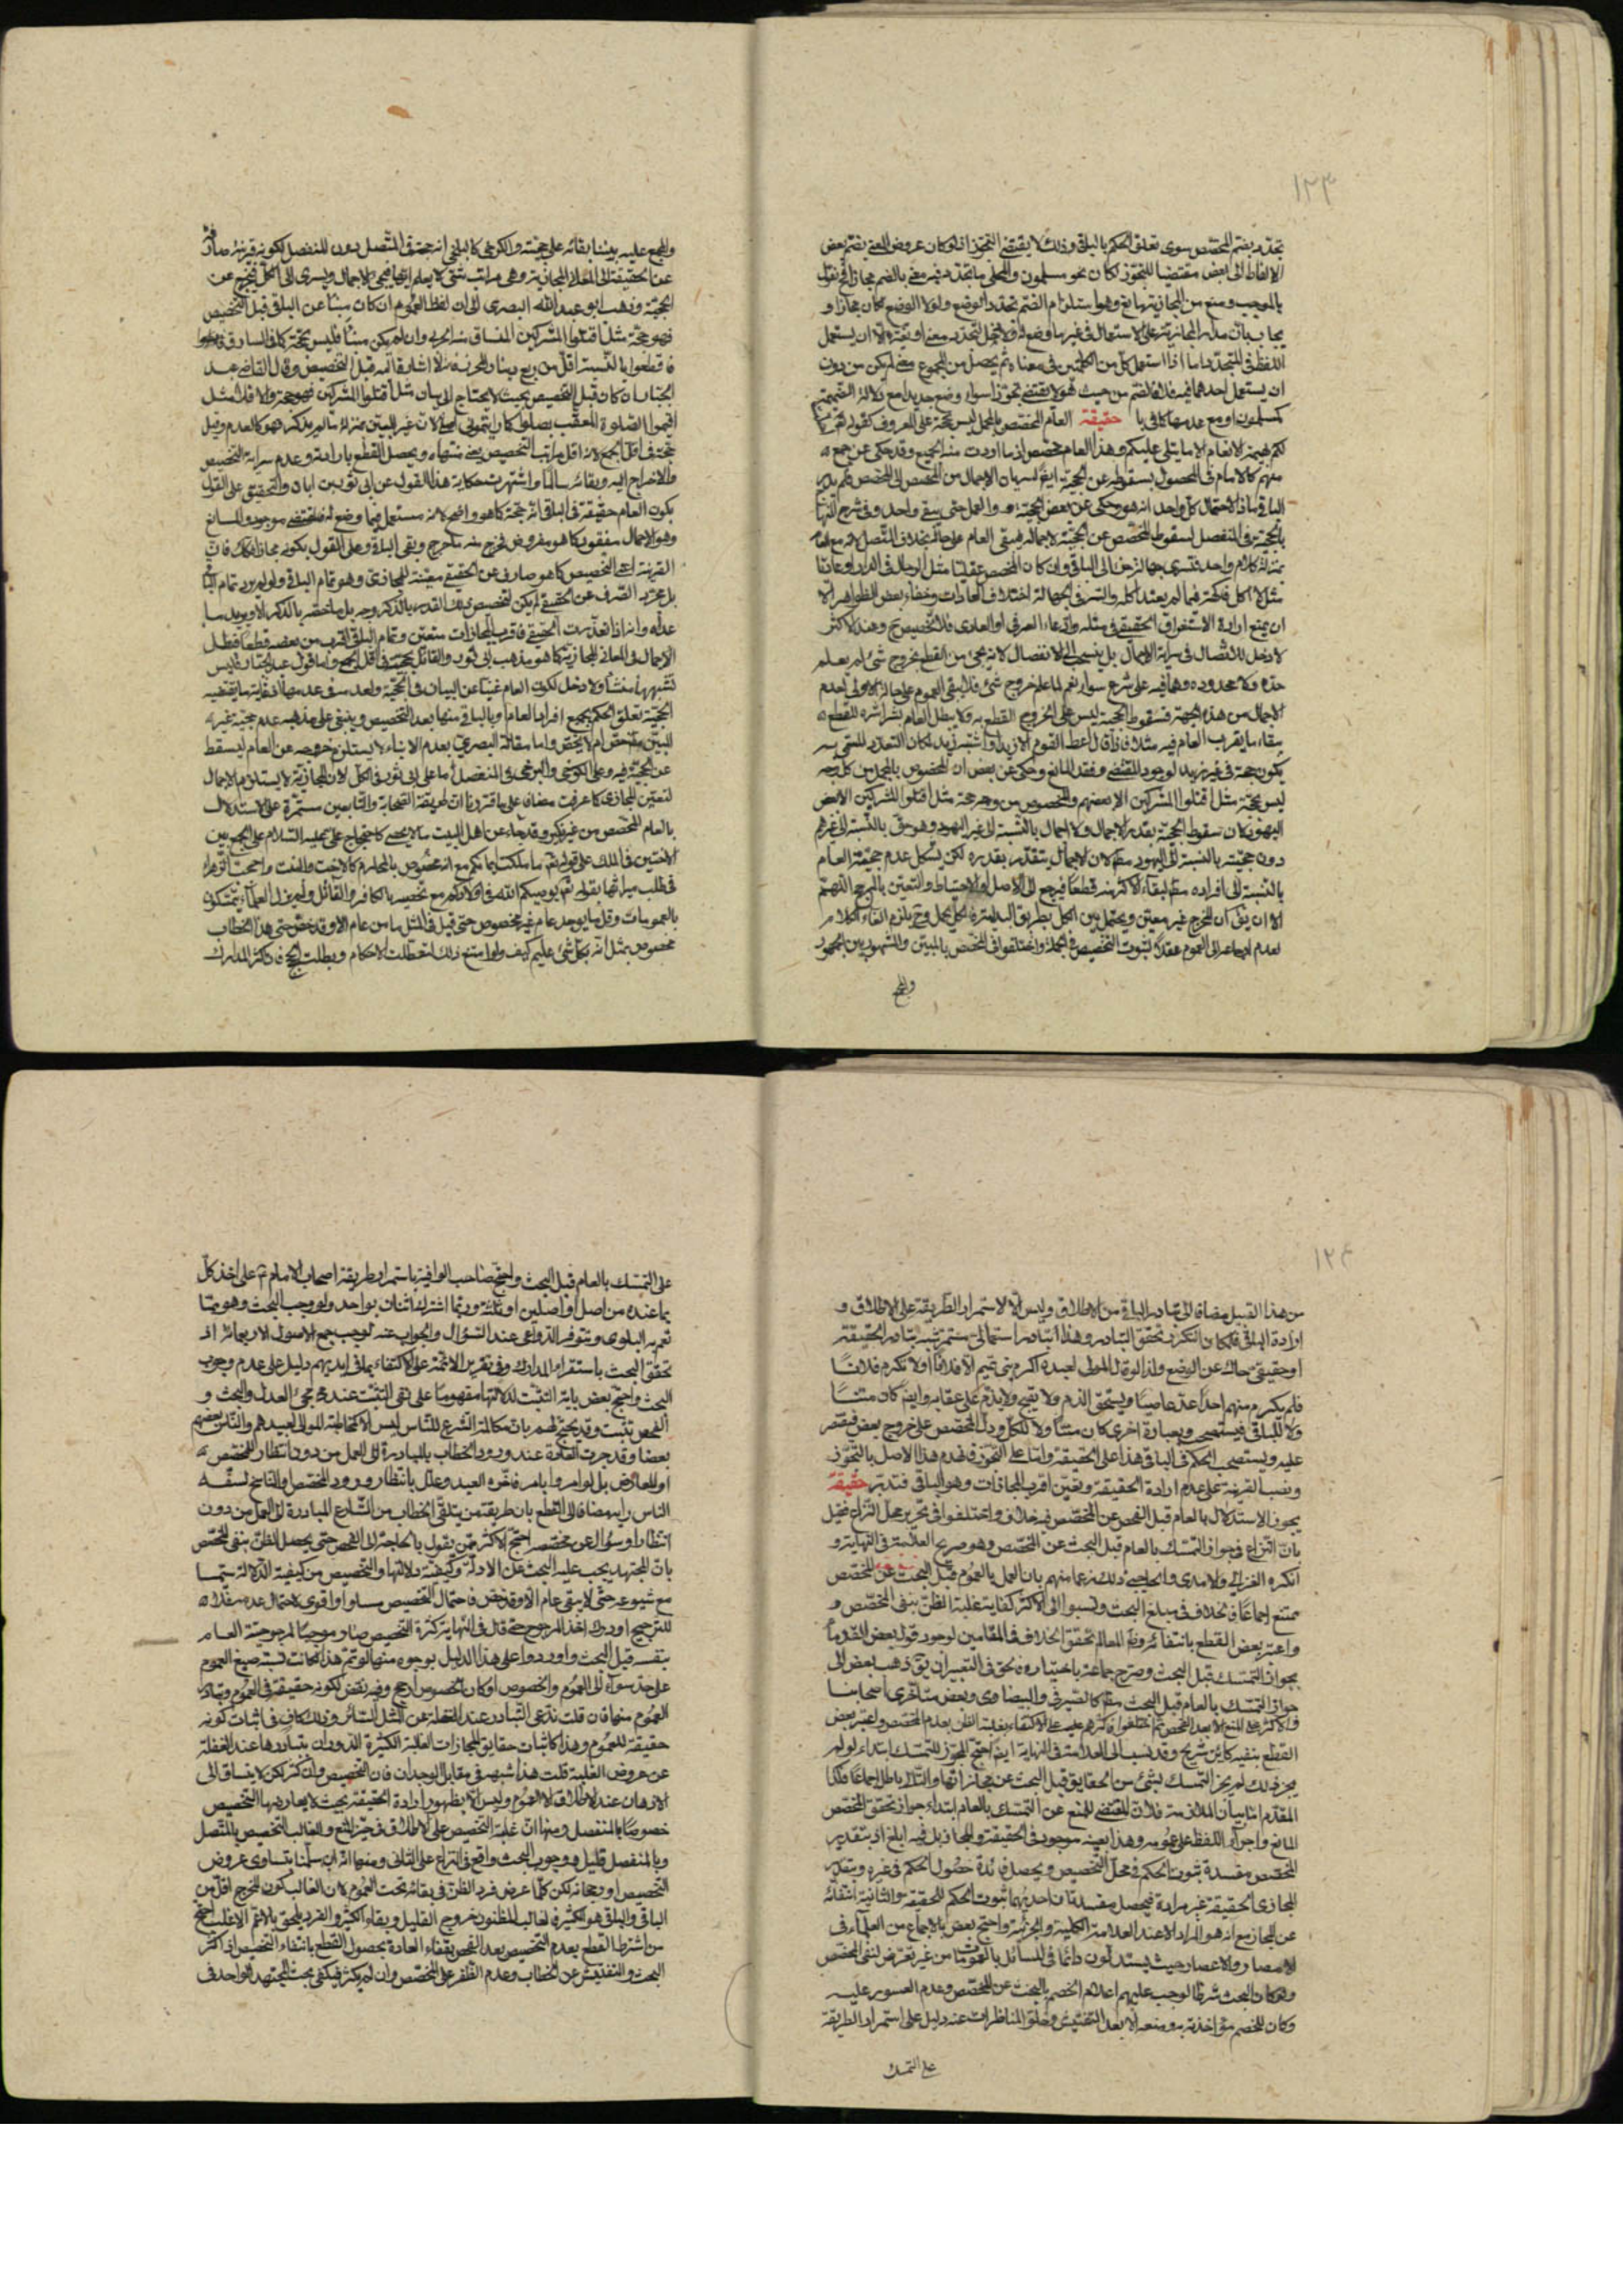 ١٢٣
يتجدد بضم المخصص سوى تعلق الحكم بالباقي وذلك لا يقتضي التجوز اذ لو كان عروض المعنى بضم بعض
الالفاظ الى بعض مقتضيا للتجوز لكان نحو مسلمون والمحلى مما يتجدد فيه معنى بالضم مجازا
بالموجب ومنع من المجازية وهو استلزام الضم تجدد الوضع ولولا الوضع لكان مجازا و
يجاب بان مدار المجازية على الاستعمال في غير ما وضع له الا ان يستعمل
اللفظ في المتجدد اما اذا استعمل كل من الكلمتين في معناه ثم يحصل من المجموع معنى لم يكن من دون
ان يستعمل احدهما فيه فلا فالضم من حيث هو لا يقتضي تجوزا سواء وضع جديدا مع دلالة الضميمة
كمسلمون او مع عدمها كما في يا حقيقة العام المخصص بالمجمل ليس بحجة على المعروف كقوله
لكم بهيمة الانعام الا ما يتلى عليكم وهذا العام مخصص اذ ما اردت منه الجميع وقد حكى عن جمع
منهم كالامام في المحصول بسقوطه عن الحجية ايضا لسريان الاجمال من المخصص الى المخصص
الباقي لاحتمال كل واحد انه هو وحكى عن بعض الحجية والعمل حتى يبقى واحد وفي شرح النهاية
بالحجية في المنفصل لسقوط المخصص عن الحجية لاجماله فيبقى العام على حاله بخلاف المتصل لانه مع العام
بمنزلة كلام واحد فتسرى جهالته الى الباقي وان كان المخصص عقليا مثل الرجال في الدار او عاديا
مثل لا آكل فاكهة فيما لم يعتد اكله والسر في الجهالة اختلاف العادات وخفاء بعض الظواهر الا
ان يمنع ارادة الاستغراق الحقيقي في مثله وادعاء العرفي او العادي فلا تخصيص ح وعند الاكثر
لا دخل للاتصال في سراية الاجمال بل ينسحب الى الانفصال لانه يجئ من القطع بخروج شئ لم يعلم
حده ولا محدوده وهما فيه على شرع سواء نعم لما علم خروج شئ فلا يبقى العموم على حاله الاولى لعدم
الاجمال من هذه الجهة فسقوط الحجية ليس على الخروج القطع به ولا يبطل العام بشراشره للقطع
ببقاء ما يقرب العام فيه مثلا فاذا قال اعط القوم الا زيدا واشتبه زيد لكان القدر المتيقن
يكون حجة في غير زيد لوجود المقتضي وفقد المانع وحكى عن بعض ان المخصوص بالمجمل من كل وجه
ليس بحجة مثل اقتلوا المشركين الا بعضهم والمخصوص من وجه حجة مثل اقتلوا المشركين الا بعض
اليهود لان سقوط الحجية بقدر الاجمال ولا اجمال بالنسبة الى غير اليهود وهو حق بالنسبة الى غيرهم
دون حجيته بالنسبة الى اليهود مطلقا لان الاجمال يتقدر بقدره لكن يشكل عدم حجية العام
بالنسبة الى افراده مطلقا لبقاء الاكثر منه قطعا فيرجع الى الاصل او الاحتياط والتعيين بالمرجح اللهم
الا ان يقال ان المخرج غير معين ويحتمل بين الكل بطريق البدلية الكل محل وح يلزم الغاء الكلام
لعدم ارجاعه الى العموم عقلا لثبوت التخصيص في الجملة واختلفوا في المخصص بالمبين والمشهور بين الجمهور
والمجمع
والمجمع عليه بيننا بقائه على حجيته والكرخي كالبلخي انه حجة في المتصل دون المنفصل لكونه قرينة صارفة
عن الحقيقة الى المعاني المجازية وهي مراتب شتى لا يعلم ايها فيجئ الاجمال ويسرى الى الكل فيخرج عن
الحجية وذهب ابو عبد الله البصري الى ان لفظ العموم ان كان منبئا عن الباقي قبل التخصيص
فهو حجة مثل اقتلوا المشركين المنساق منه الحربي وان لم يكن منبئا فليس بحجة كما في السارق
فاقطعوا بالنسبة اقل من ربع دينار والحرز فانه لا اشارة اليه قبل التخصيص وقال القاضي عبد
الجبار ان كان قبل التخصيص بحيث لا يحتاج الى بيان مثل اقتلوا المشركين فهو حجة والا فلا مثل
اقيموا الصلوة المعقب بصلوا كما رأيتموني اصلي لان غير المبين بمنزلة ما لم يذكر فهو كالعدم وقيل
حجة في اقل الجمع لانه اقل مراتب التخصيص يعني منتهاه ويحصل القطع بارادته وعدم سراية التخصيص
والاخراج اليه وبقائه سالما واشتهرت حكاية هذا القول عن ابي ثور بن ابان والتحقيق على القول
بكون العام حقيقة في الباقي انه حجة كما هو واضح لانه مستعمل فيما وضع له فالمقتضي موجود والمانع
وهو الاجمال مفقود كما هو مفروض فخرج منه ما خرج وبقي الباقي وعلى القول بكونه مجازا فكذلك فان
القرينة اعني التخصيص كما هو صارف عن الحقيقي معينة للمجازي وهو تمام الباقي ولو لم يرد تمام الباقي
بل مجرد الصرف عن الحقيقي لم يكن لتخصيص ذلك القدر بالذكر وجه بل ما خصه بالذكر الا ويريد ما
عداه وانه اذا تعذرت الحقيقي فاقرب المجازات متعين وتمام الباقي اقرب من بعضه قطعا فبطل
الاجمال في المعاني المجازية كما هو مذهب ابي ثور والقائل بحجيته في اقل الجمع واما قول عبد الجبار فليس
لشبهتهما منشأ ولا دخل لكون العام غنيا عن البيان في الحجية واحد سوى عدمها اذ غاية ما يقتضيه
الحجية تعلق الحكم بجميع افراد العام او بالباقي منها بعد التخصيص وينبغي على مذهبه عدم حجية غيره
المبين خص ام لا يخص واما مقالة البصري بعدم الانباء لا يستلزم خروجه عن العام ليسقط
عن الحجية فيه وعلى الكرخي والبلخي في المنفصل اما على ابي ثور في الكل لان المجازية لا يستلزم الاجمال
لتعين المجازي كما عرفت مضافا على ما قررنا ان طريقة الصحابة والتابعين مستمرة على الاستدلال
بالعام المخصص من غير نكير وقد جاء عن اهل البيت ما لا يحصى كاحتجاج علي عليه السلام على الجمع بين
الاختين في الملك على قوله تعالى ما ملكت ايمانكم مع انه مخصوص بالمحارم كالاخت والبنت واحتجت الزهراء
في طلب ميراثها بقوله تعالى يوصيكم الله في اولادكم مع تخصيصه بالكافر والقاتل ولم يزل العلماء يتمسكون
بالعمومات وقل ما يوجد عام غير مخصوص حتى قيل في المثل ما من عام الا وقد خص حتى هذا الخطاب
مخصوص بمثل انه بكل شئ عليم كيف ولو امتنع ذلك لتعطلت الاحكام وبطلت الحجج فان اكثر المدارك
١٢٤
من هذا القبيل مضافا الى تبادر الباقي من الاطلاق وليس الا لاستمرار الطريقة على الاطلاق و
ارادة الباقي فلمكان التكرر تحقق التبادر وهذا التبادر استعمالي مستمر شبيه بتبادر الحقيقة
او حقيقي حاك عن الوضع ولذا لو قال المولى لعبده اكرم بني تميم الا فلانا او لا تكرم فلانا
فلم يكرم منهم احدا عد عاصيا ويستحق الذم ولا يقبح ولا يذم على عقابه وايضا كان متناولا
ولا للباقي فيستصحب وبعبارة اخرى كان متناولا للكل ودل المخصص على خروج بعض فيقتصر
عليه ويستصحب الحكم في الباقي هذا على الحقيقة واما على التجوز فانهدم هذا الاصل بالتجوز
ونصب القرينة على عدم ارادة الحقيقة وتعين اقرب المجازات وهو الباقي فتدبر حقيقة
يجوز الاستدلال بالعام قبل الفحص عن المخصص فيه خلاف واختلفوا في تحرير محل النزاع فقيل
بان النزاع في جواز التمسك بالعام قبل البحث عن المخصص وهو صريح العلامة في النهاية و
انكره الغزالي والامدي والحاجبي ذلك زعما منهم بان العمل بالعموم قبل البحث عن المخصص
ممتنع اجماعا والخلاف في مبلغ البحث ونسبوا الى الاكثر كفاية غلبة الظن بنفي المخصص و
واعتبر بعض القطع بانتفائه وظاهر المعالم تحقق الخلاف في المقامين لوجود قول بعض القدماء
بجواز التمسك قبل البحث وصرح جماعة باختياره نحو في التعبير ان يق ذهب بعض الى
جواز التمسك بالعام قبل البحث مطلقا كالصيرفي والبيضاوي وبعض متأخري اصحابنا
والاكثر على المنع الا بعد الفحص ثم اختلفوا فاكثرهم على الاكتفاء بغلبة الظن بعدم المخصص واعتبر بعض
القطع بنفيه كابن شريح وقد نسب الى العلامة في النهاية ايضا احتج المجوز للتمسك ابتداء لو لم
يجز ذلك لم يجز التمسك بشئ من الحقايق قبل البحث عن مجازاتها والتالي باطل اجماعا فكذا
المقدم اما بيان الملازمة فلان المقتضي للمنع عن التمسك بالعام ابتداء جواز تحقق المخصص
المانع واجراء اللفظ على عمومه وهذا بعينه موجود في الحقيقة والمجاز بل فيه ابلغ اذ بتقدير
المخصص مفسدة ثبوت الحكم في محل التخصيص ويحصل فائدة حصول الحكم في غيره وبتقدير
المجازي الحقيقة غير مرادة فيحصل مفسدتان احديهما ثبوت الحكم للحقيقة والثانية انتفائه
عن المجاز مع انه هو المراد الا عند العلامة الكلية والجزئية واحتج بعض بالاجماع من العلماء في
الامصار والاعصار حيث يستدلون دائما في المسائل بالعمومات من غير تعرض لنفي المخصص
ولو كان البحث شرطا لوجب عليهم اعلام الخصم بالبحث عن المخصص وعدم العثور عليه
وكان للخصم مؤاخذته به ومنعه الا بعد التفتيش وخلو المناظرات عنه دليل على استمرار الطريقة
على التمسك
على التمسك بالعام قبل البحث واحتج صاحب الوافية باستمرار طريقة اصحاب الامام ع على اخذ كل
بما عنده من اصل او اصلين او ثلثة وربما اشترك اثنان بواحد ولو وجب البحث وهو مما
تعم به البلوى وتتوفر الدواعي عند السؤال والجواب عنه لوجب جمع الاصول الاربعمائة اذ
تحقق البحث باستقراء المدارك وفي تقرير الائمة على الاكتفاء بما في ايديهم دليل على عدم وجوب
البحث واحتج بعض بآية التثبت لدلالتها مفهوما على نفي التثبت عند مجئ العدل والبحث و
الفحص تثبت وقد يحتج لهم بان مكالمة الشرع للناس ليس الا كمخاطبة الموالي لعبيدهم والناس بعضهم
بعضا وقد جرت العادة عند ورود الخطاب بالمبادرة الى العمل من دون انتظار للمخصص
او المعارض بل لو امر وا بامر فاخره العبد وعلل بانتظار ورود المخصص والناسخ لسفه
الناس رايه مضافا الى القطع بان طريقة من يتلقى الخطاب من الشارع المبادرة الى العمل من دون
انتظار او سؤال عن مخصصه احتج الاكثر ممن يقول بالحاجة الى الفحص حتى يحصل الظن بنفي المخصص
بان المجتهد يجب عليه البحث عن الادلة وكيفية دلالتها والتخصيص من كيفية الدلالة سيما
مع شيوعه حتى لا يبقى عام الا وقد خص فاحتمال التخصيص مساو او اقوى لاحتمال عدمه فلا
للترجيح او درك اخذ المرجوح حتى قال في النهاية كثرة التخصيص صار موجبا لمرجوحية العام
بنفسه قبل البحث واوردوا على هذا الدليل بوجوه منها لو تم هذا لكانت نسبة صيغ العموم
على حد سواء الى العموم والخصوص او كان الخصوص ارجح وفيه نقض لكونه حقيقة في العموم وتبادر
العموم منها فان قلت ندعي التبادر عند الغفلة عن المثل السائر وذلك كاف في اثبات كونه
حقيقة للعموم وهذا كاثبات حقايق المجازات الغالبة الكثيرة الدوران بتبادرها عند الغفلة
عن عروض الغلبة قلت هذا شبهة في مقابل الوجدان فان التخصيص وان كثر لكن لا ينساق الى
الاذهان عند الاطلاق الا العموم وليس الا بظهور ارادة الحقيقة بحيث لا يعارضها التخصيص
خصوصا بالمنفصل ومنها ان غلبة التخصيص على الاطلاق في حيز المنع والغالب التخصيص بالمتصل
وبالمنفصل قليل ووجوب البحث واقع في النزاع على الثاني ومنها انه ان سلمنا تساوي عروض
التخصيص او رجحانه لكن كلما عرض فرد الظن في بقائه تحت العموم لان الغالب كون المخرج اقل من
الباقي والباقي هو الكثير فالغالب المظنون خروج القليل وبقاء الكثير والفرد يلحق بالاعم الاغلب احتج
من اشترط القطع بعدم التخصيص بعد الفحص بقضاء العادة بحصول القطع بانتفاء التخصيص اذا كثر
البحث والتفتيش عن الخطاب وعدم الظفر على المخصص وان لم يكثر فيكفي بحث المجتهد الواحد في